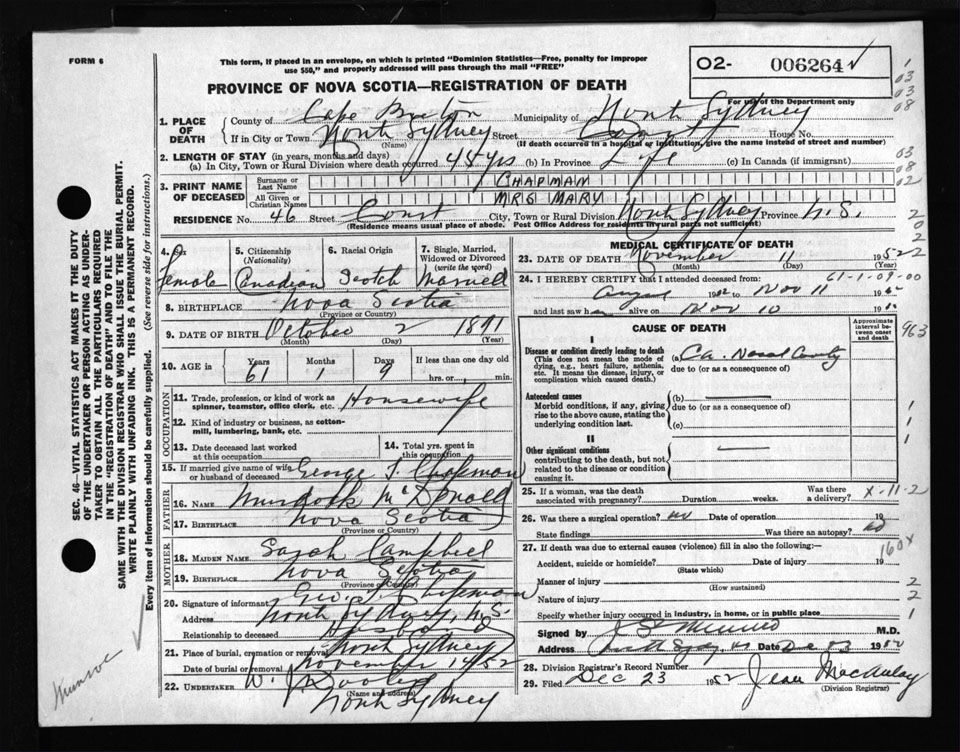 FORM 6
This form, if placed in an envelope, on which is printed "Dominion Statistics—Free, penalty for improper
use $50," and properly addressed will pass through the mail "FREE"
O2- 006264
PROVINCE OF NOVA SCOTIA—REGISTRATION OF DEATH
For use of the Department only
1. PLACE OF DEATH County of Cape Breton Municipality of North Sydney
If in City or Town North Sydney Street House No.
(Name) (If death occurred in a hospital or institution, give the name instead of street and number)
2. LENGTH OF STAY (in years, months and days)
(a) In City, Town or Rural Division where death occurred 45 yrs (b) In Province Life (c) In Canada (if immigrant)
3. PRINT NAME OF DECEASED Surname or Last Name CHAPMAN
All Given or Christian Names MRS MARY
RESIDENCE No. 46 Street Court City, Town or Rural Division North Sydney Province N.S.
(Residence means usual place of abode. Post Office Address for residents in rural parts not sufficient)
4. Sex Female
5. Citizenship (Nationality) Canadian
6. Racial Origin Scotch
7. Single, Married, Widowed or Divorced (write the word) Married
8. BIRTHPLACE Nova Scotia
(Province or Country)
9. DATE OF BIRTH October 2 1891
(Month) (Day) (Year)
10. AGE in Years 61 Months 1 Days 9 If less than one day old
hrs. or min.
OCCUPATION
11. Trade, profession or kind of work as spinner, teamster, office clerk, etc. Housewife
12. Kind of industry or business, as cotton-mill, lumbering, bank, etc.
13. Date deceased last worked at this occupation
14. Total yrs. spent in this occupation
15. If married give name of wife or husband of deceased George T. Chapman
FATHER
16. NAME Murdock McDonald
17. BIRTHPLACE Nova Scotia
(Province or Country)
MOTHER
18. MAIDEN NAME Sarah Campbell
19. BIRTHPLACE Nova Scotia
(Province or Country)
20. Signature of informant Geo. T. Chapman
Address North Sydney, N.S.
Relationship to deceased Husband
21. Place of burial, cremation or removal North Sydney
Date of burial or removal November 1952
22. UNDERTAKER W. J. Dooley
(Name and address)
North Sydney
MEDICAL CERTIFICATE OF DEATH
23. DATE OF DEATH November 11 1952
(Month) (Day) (Year)
24. I HEREBY CERTIFY that I attended deceased from: 61-1-09-00
August 1952 to Nov 11 19
and last saw h alive on Nov 10 19
CAUSE OF DEATH
Approximate interval between onset and death
I
Disease or condition directly leading to death
(This does not mean the mode of dying, e.g., heart failure, asthenia, etc. It means the disease, injury, or complication which caused death.)
(a) Ca. Nasal Cavity
due to (or as a consequence of)
Antecedent causes
Morbid conditions, if any, giving rise to the above cause, stating the underlying condition last.
(b)
due to (or as a consequence of)
(c)
II
Other significant conditions
contributing to the death, but not related to the disease or condition causing it.
25. If a woman, was the death associated with pregnancy? Duration weeks. Was there a delivery? X-11-2
26. Was there a surgical operation? no Date of operation 19
State findings Was there an autopsy? no
27. If death was due to external causes (violence) fill in also the following:—
160X
Accident, suicide or homicide? Date of injury 19
(State which)
Manner of injury
(How sustained)
Nature of injury
Specify whether injury occurred in industry, in home, or in public place
Signed by M.D.
Address Date Dec 23 1952
28. Division Registrar's Record Number
29. Filed Dec 23 1952 Jean MacAulay
(Division Registrar)
963
Munroe
SEC. 46—VITAL STATISTICS ACT MAKES IT THE DUTY
OF THE UNDERTAKER OR PERSON ACTING AS UNDER-
TAKER TO OBTAIN ALL THE PARTICULARS REQUIRED
IN THE "REGISTRATION OF DEATH" AND TO FILE THE
SAME WITH THE DIVISION REGISTRAR WHO SHALL ISSUE THE BURIAL PERMIT.
WRITE PLAINLY WITH UNFADING INK. THIS IS A PERMANENT RECORD.
Every item of information should be carefully supplied. (See reverse side for instructions.)